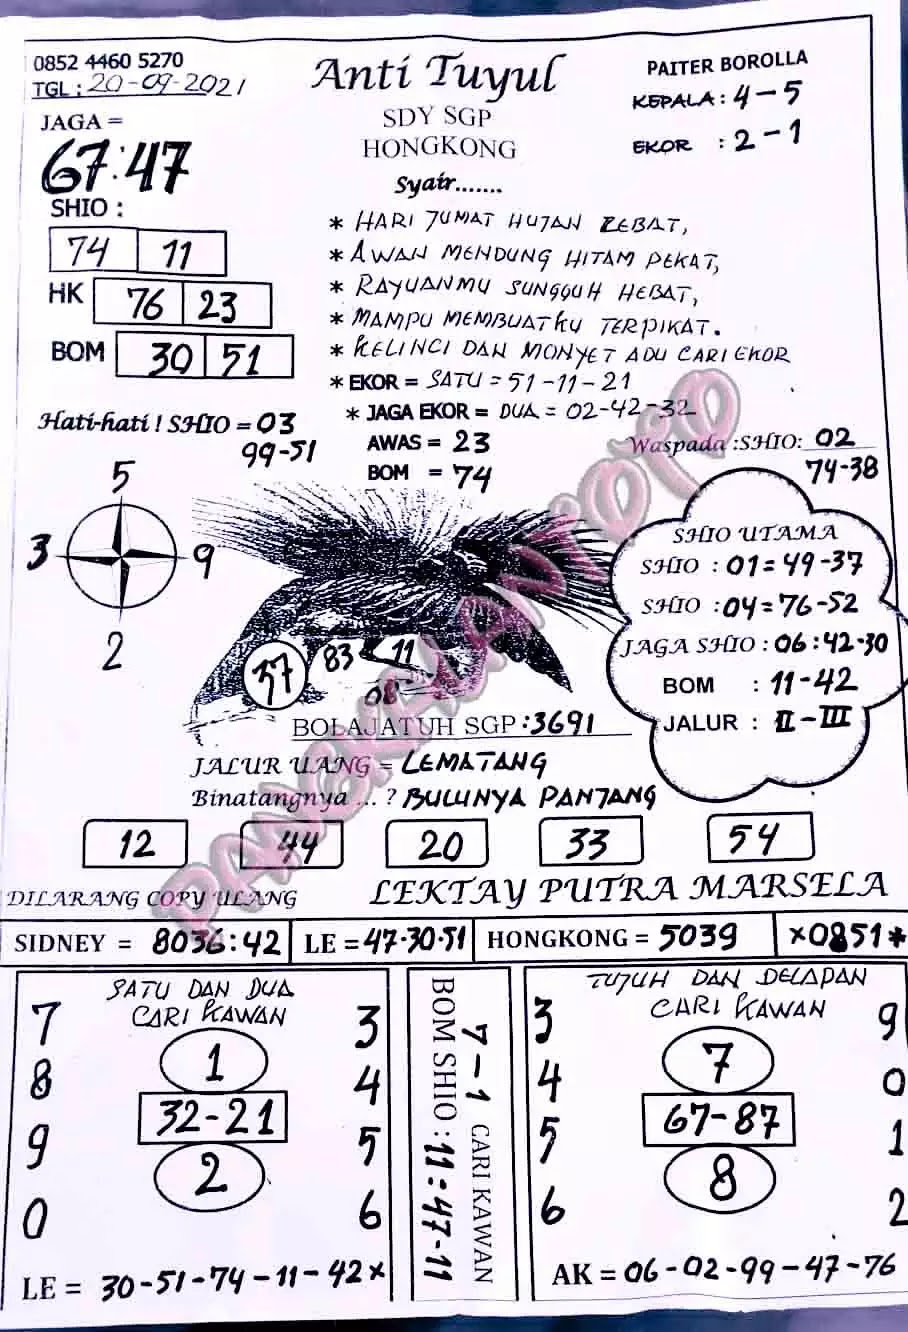 0852 4460 5270
TGL : 20-09-2021
Anti Tuyul
SDY SGP
HONGKONG
Syair.......
PAITER BOROLLA
KEPALA : 4 - 5
EKOR : 2 - 1
JAGA =
67:47
SHIO :
74 11
HK 76 23
BOM 30 51
* HARI JUMAT HUJAN LEBAT,
* AWAN MENDUNG HITAM PEKAT,
* RAYUANMU SUNGGUH HEBAT,
* MAMPU MEMBUATKU TERPIKAT.
* KELINCI DAN MONYET ADU CARI EKOR
* EKOR = SATU = 51-11-21
* JAGA EKOR = DUA = 02-42-32
AWAS = 23
BOM = 74
Hati-hati ! SHIO = 03
99-51
Waspada :SHIO: 02
74-38
5
3 9
2
37 83 11
SHIO UTAMA
SHIO : 01=49-37
SHIO : 04=76-52
JAGA SHIO : 06:42-30
BOM : 11-42
JALUR : II-III
BOLA JATUH SGP :3691
JALUR UANG = LEMATANG
Binatangnya ... ? BULUNYA PANJANG
PANGKALANTOTO
12 44 20 33 54
DILARANG COPY ULANG
LEKTAY PUTRA MARSELA
SIDNEY = 8036:42 LE =47-30-51 HONGKONG = 5039 *0851*
SATU DAN DUA
CARI KAWAN
7 3
1
8 4
32-21
9 5
2
0 6
LE = 30-51-74-11-42*
BOM SHIO : 11=47-11
7-1 CARI KAWAN
TUJUH DAN DELAPAN
CARI KAWAN
3 9
7
4 0
67-87
5 1
8
6 2
AK = 06-02-99-47-76